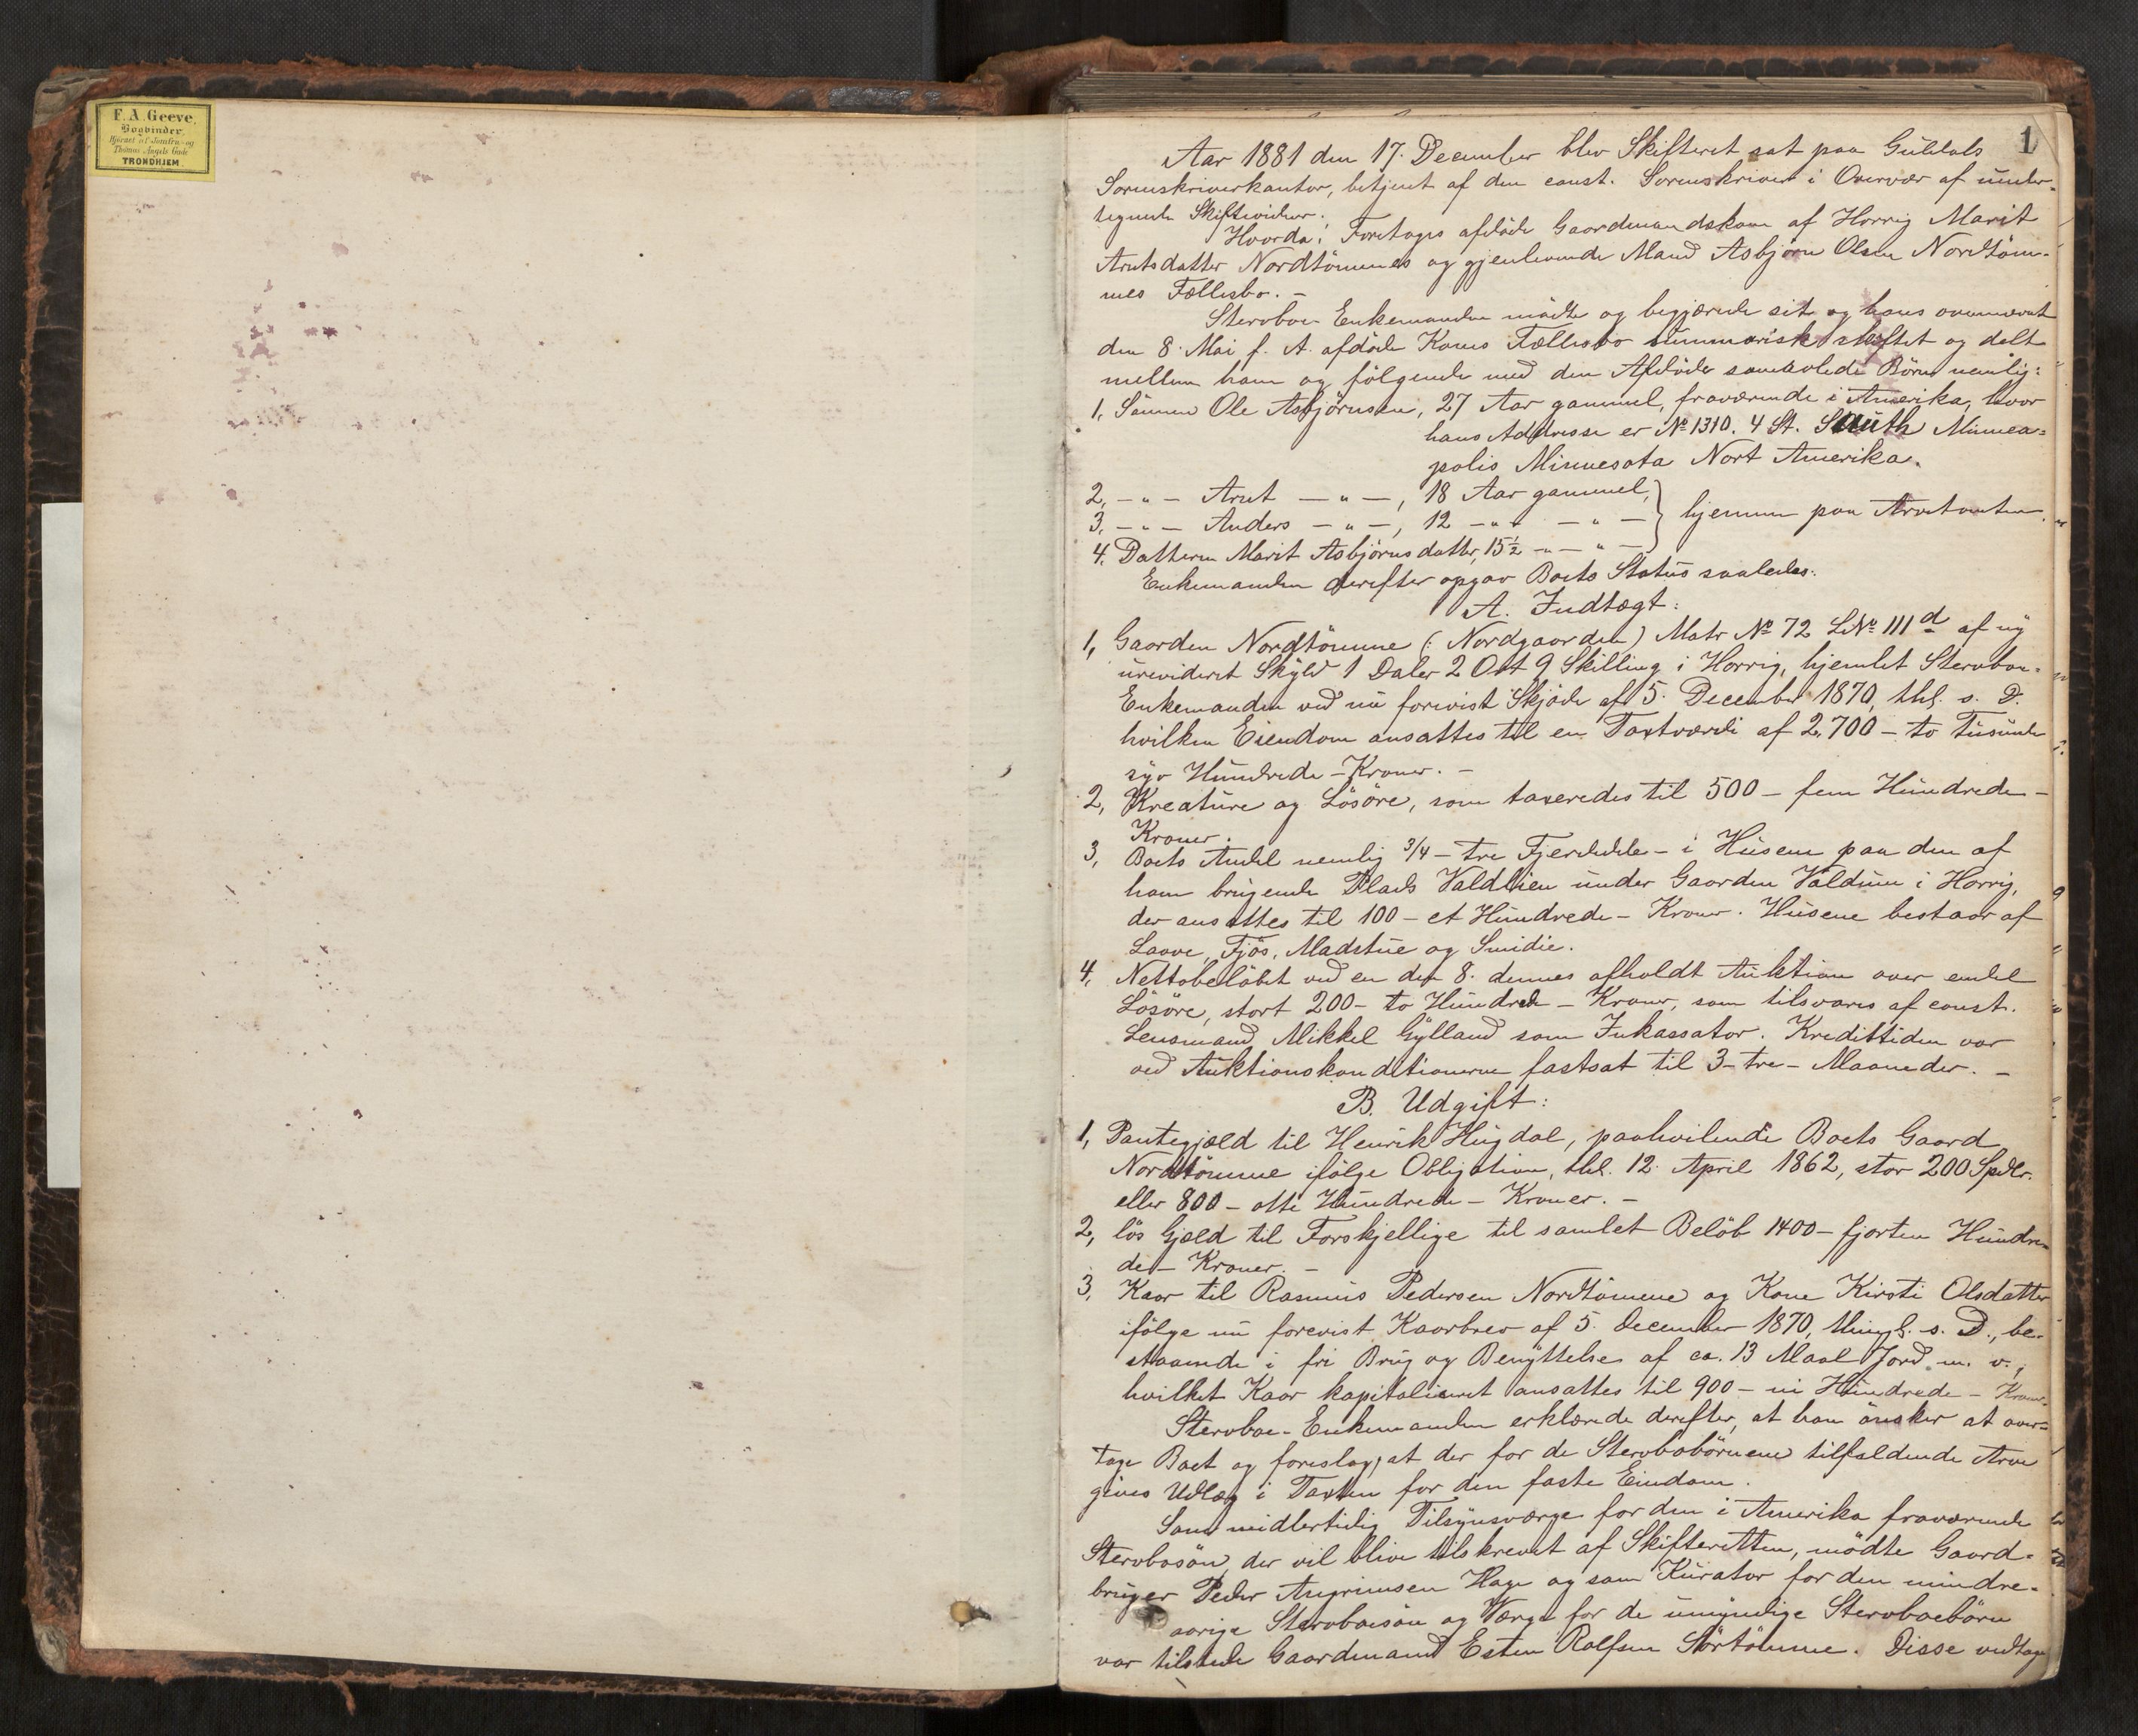 F. A. Geeve,
Bogbinder.
Hjørnet af Jomfru- og
Thomas Angels Gade
TRONDHJEM.
1
Aar 1881 den 17. December blev Skifteret sat paa Guldals
Sorenskriverkontor, betjent af den const. Sorenskriver i Overvær af under-
tegnede Skiftevidner.
Hvorda: Foretoges afdöde Gaardmandskone af Horrig Marit
Arntsdatter Nordtömmes og gjenlevende Mand Asbjörn Olsen Nordtöm-
mes Fællesbo. -
Stervboe-Enkemanden mödte og begjærede sit og hans ovennævnt
den 8. Mai f. A. afdöde Kones Fællesbo summarisk skiftet og delt
mellem ham og fölgende med den Afdöde samavlede Börn nemlig:
1, Sönnen Ole Asbjörnsen, 27 Aar gammel, fraværende i Amerika, hvor
hans Addresse er No 1310. 4 St. South Minnea-
polis Minnesota Nort Amerika.
2, - " - Arnt - " -, 18 Aar gammel,
3, - " - Anders - " -, 12 - " - - " - } hjemme paa Arvetomten.
4. Datteren Marit Asbjörnsdatter, 15½ - " - " -
Enkemanden derefter opgav Boets Status saaledes:
A. Indtægt:
1, Gaarden Nordtömme (: Nordgaarden) Matr No 72 LNo 111 d af ny
urevideret Skyld 1 Daler 2 Ort 9 Skilling i Horrig, hjemlet Stervboe-
Enkemanden ved nu forevist Skjöde af 5. December 1870, thl. s. D.
hvilken Eiendom ansattes til en Taxtværdi af 2,700 - to Tusinde
syv Hundrede - Kroner. -
2, Kreature og Lösöre, som taxeredes til 500 - fem Hundrede -
Kroner.
3, Boets Andel nemlig 3/4 - tre Fjerdedele - i Husene paa den af
ham brugende Plads Valdlien under Gaarden Valdum i Horrig,
der ansattes til 100 - et Hundrede - Kroner. Husene bestaar af
Laave, Fjös, Madstue og Smidie.
4, Nettobelöbet ved en den 8. dennes afholdt Auktion over endel
Lösöre, stort 200 - to Hundrede - Kroner, som tilsvares af const.
Lensmand Mikkel Gylland som Inkassator. Kredittiden var
ved Auktionskonditionerne fastsat til 3 - tre - Maaneder. -
B. Udgift:
1, Pantegjæld til Henrik Hugdal, paahvilende Boets Gaard
Nordtömme ifölge Obligation, thl. 12. April 1862, stor 200 Spdlr.
eller 800 - otte Hundrede - Kroner. -
2, lös Gjæld til Forskjellige til samlet Belöb 1400 - fjorten Hundre-
de - Kroner. -
3, Kaar til Rasmus Pedersen Nordtömme og Kone Kirsti Olsdatter
ifölge nu forevist Kaarbrev af 5. December 1870, thingl. s. D., be-
staaende i fri Brug og Benyttelse af ca. 13 Maal Jord m. v.,
hvilket Kaar kapitaliseret ansattes til 900 - ni Hundrede - Kroner.
Stervboe-Enkemanden erklærede derefter, at han önsker at over-
tage Boet og foreslog, at der for de Stervbobörnene tilfaldende Arve
gives Udlæg i Taxten for den faste Eiendom.
Som midlertidig Tilsynsværge for den i Amerika fraværende
Stervbosön, der vil blive tilskrevet af Skifteretten, mödte Gaard-
bruger Peder Angrimsen Hage og som Kurator for den mindre-
aarige Stervboesön og Værge for de umyndige Stervboebörn
var tilstede Gaardmand Esten Rolfsen Sörtömme. Disse vedtage